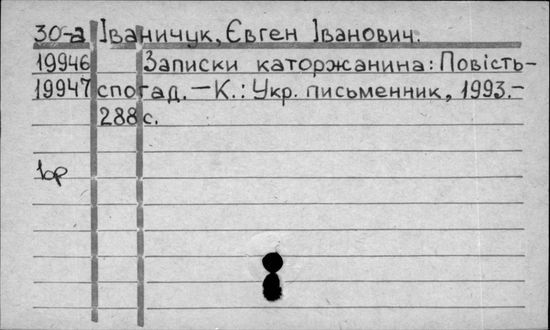 30-а Іваничук, Євген Іванович.
19946 Записки каторжанина: Повість-
19947 спогад. — К.: Укр. письменник, 1993.-
288 с.
1ор